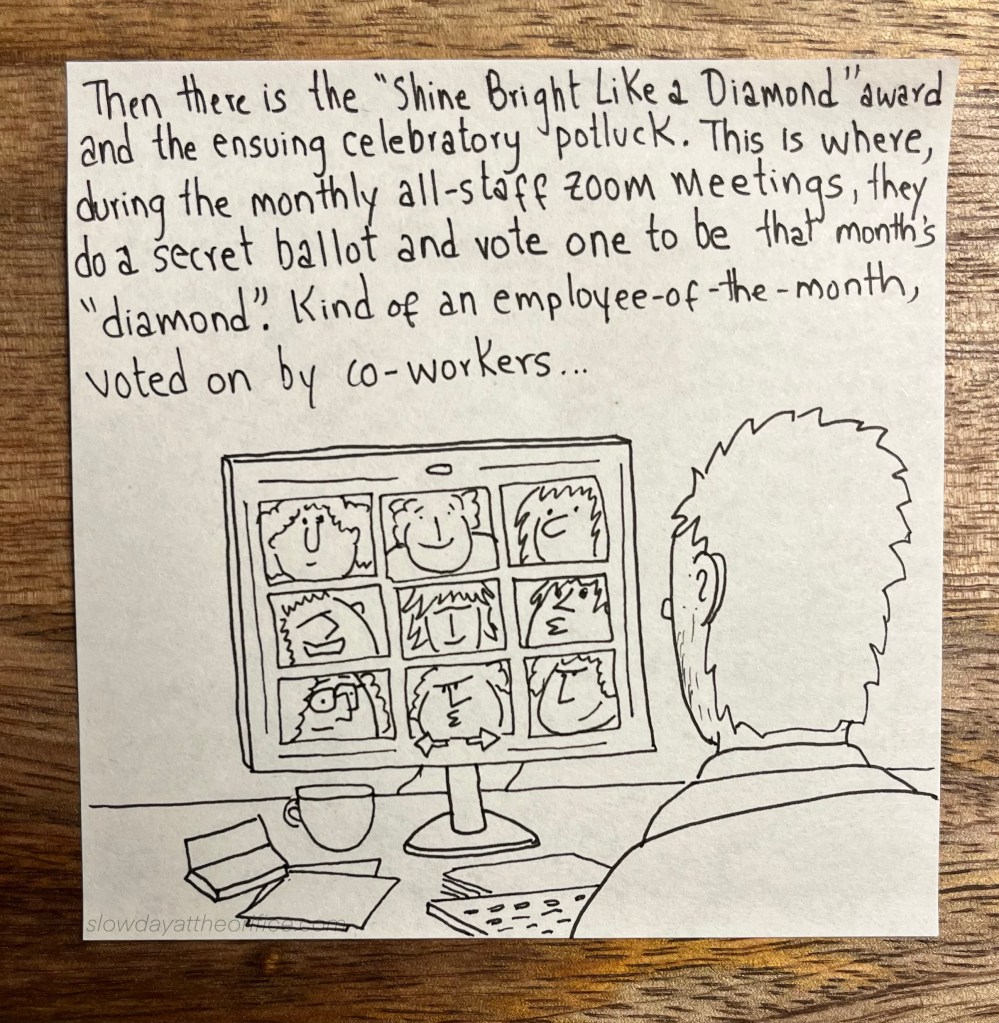 Then there is the "Shine Bright Like a Diamond" award
and the ensuing celebratory potluck. This is where,
during the monthly all-staff zoom meetings, they
do a secret ballot and vote one to be that month's
"diamond". Kind of an employee-of-the-month,
voted on by co-workers...
slowdayattheoffice.com